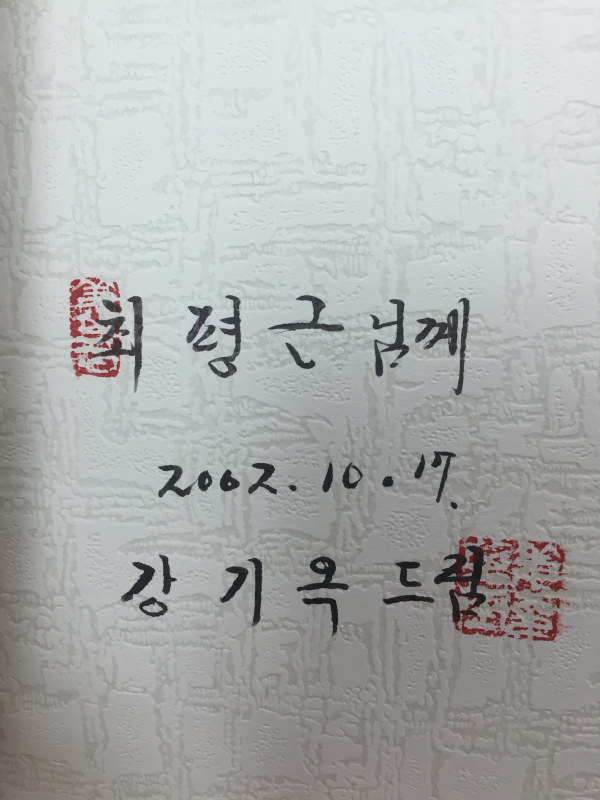 최 평 근 님께
2002. 10. 17.
강 기 옥 드림